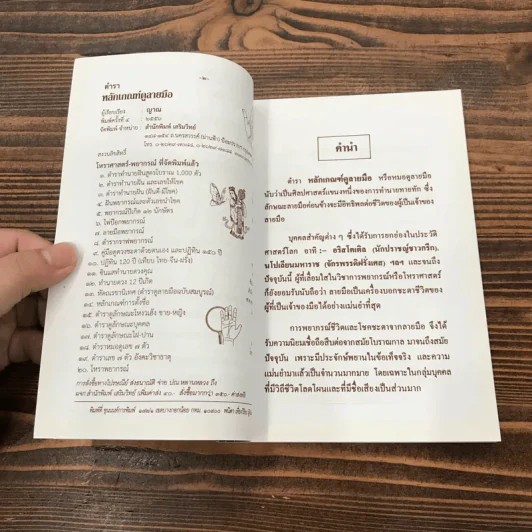 -๒-
ตำรา
หลักเกณฑ์ดูลายมือ
ผู้เรียบเรียง ญาณ
พิมพ์ครั้งที่ ๔ ๒๕๕๖
จัดพิมพ์-จำหน่าย สำนักพิมพ์ เสริมวิทย์
สงวนลิขสิทธิ์
โหราศาสตร์-พยากรณ์ ที่จัดพิมพ์แล้ว
๑. ตำราทำนายฝันสูตรโบราณ 1,000 ตัว
๒. ตำราทำนายฝัน และเลขให้โชค
๓. ตำราทำนายฝัน (ฝันดี-มีโชค)
๔. ฝันพยากรณ์และตัวเลขนำโชค
๕. พยากรณ์ปีเกิด ๑๒ นักษัตร
๖. ไพ่ป๊อกพยากรณ์
๗. ลายมือพยากรณ์
๘. ตำรากราฟพยากรณ์
๙. คู่มือดูดวงชะตาด้วยตนเอง และปฏิทิน ๑๕๐ ปี
๑๐. ปฏิทิน 120 ปี (เทียบ ไทย-จีน-ฝรั่ง)
๑๑. ซินแสทำนายดวงคุณ
๑๒. ทำนายดวง 12 ปีเกิด
๑๓. หัตถเรขานิเทศ (ตำราดูลายมือฉบับสมบูรณ์)
๑๔. หลักเกณฑ์การตั้งชื่อ
๑๕. ตำราดูลักษณะโหงวเฮ้ง ชาย-หญิง
๑๖. ตำราดูลักษณะบุคคล
๑๗. ตำราดูลักษณะไฝ-ปาน
๑๘. ตำราหมอดูเลข ๗ ตัว
๑๙. ตำราเลข ๗ ตัว อังคะวิชาธาตุ
๒๐. โหราพยากรณ์
การสั่งซื้อทางไปรษณีย์ ส่งธนาณัติ จ่าย ปณ หลานหลวง ถึง
คำนำ
ตำรา หลักเกณฑ์ดูลายมือ หรือหมอดูลายมือ
นับว่าเป็นศิลปศาสตร์แขนงหนึ่งของการทำนายทายทัก ซึ่ง
ลักษณะลายมือค่อนข้างจะมีอิทธิพลต่อชีวิตของผู้เป็นเจ้าของ
ลายมือ
บุคคลสำคัญต่าง ๆ ซึ่งได้รับการยกย่องในประวัติ
ศาสตร์โลก อาทิ :- อริสโตเติล (นักปราชญ์ชาวกรีก),
นโปเลียนมหาราช (จักรพรรดิฝรั่งเศส) ฯลฯ และจนถึง
ปัจจุบันนี้ ผู้ที่เลื่อมใสในวิชาการพยากรณ์หรือโหราศาสตร์
ก็ยังยอมรับนับถือว่า ลายมือเป็นเครื่องบอกชะตาชีวิตของ
ผู้ที่เป็นเจ้าของมือได้อย่างแม่นยำที่สุด
การพยากรณ์ชีวิตและโชคชะตาจากลายมือ จึงได้
รับความนิยมเชื่อถือสืบต่อจากสมัยโบราณกาล มาจนถึงสมัย
ปัจจุบัน เพราะมีประจักษ์พยานในข้อเท็จจริง และความ
แม่นยำแล้วเป็นจำนวนมากมาย โดยเฉพาะในกลุ่มบุคคล
ที่มีวิถีชีวิตโลดโผนและที่มีชื่อเสียงเป็นส่วนมาก